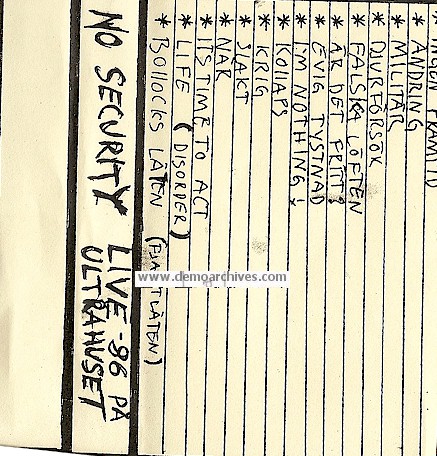 INGEN FRAMTID
* ÄNDRING
* MILITÄR
* DJURFÖRSÖK
* FALSKA LÖFTEN
* ÄR DET FRITT?
* EVIG TYSTNAD
* I'M NOTHING!
* KOLLAPS
* KRIG
* SLAKT
* NÄR
* ITS TIME TO ACT
* LIFE (DISORDER)
* BOLLOCKS LÅTEN
NO SECURITY LIVE -86 PÅ
ULTRAHUSET
www.demoarchives.com